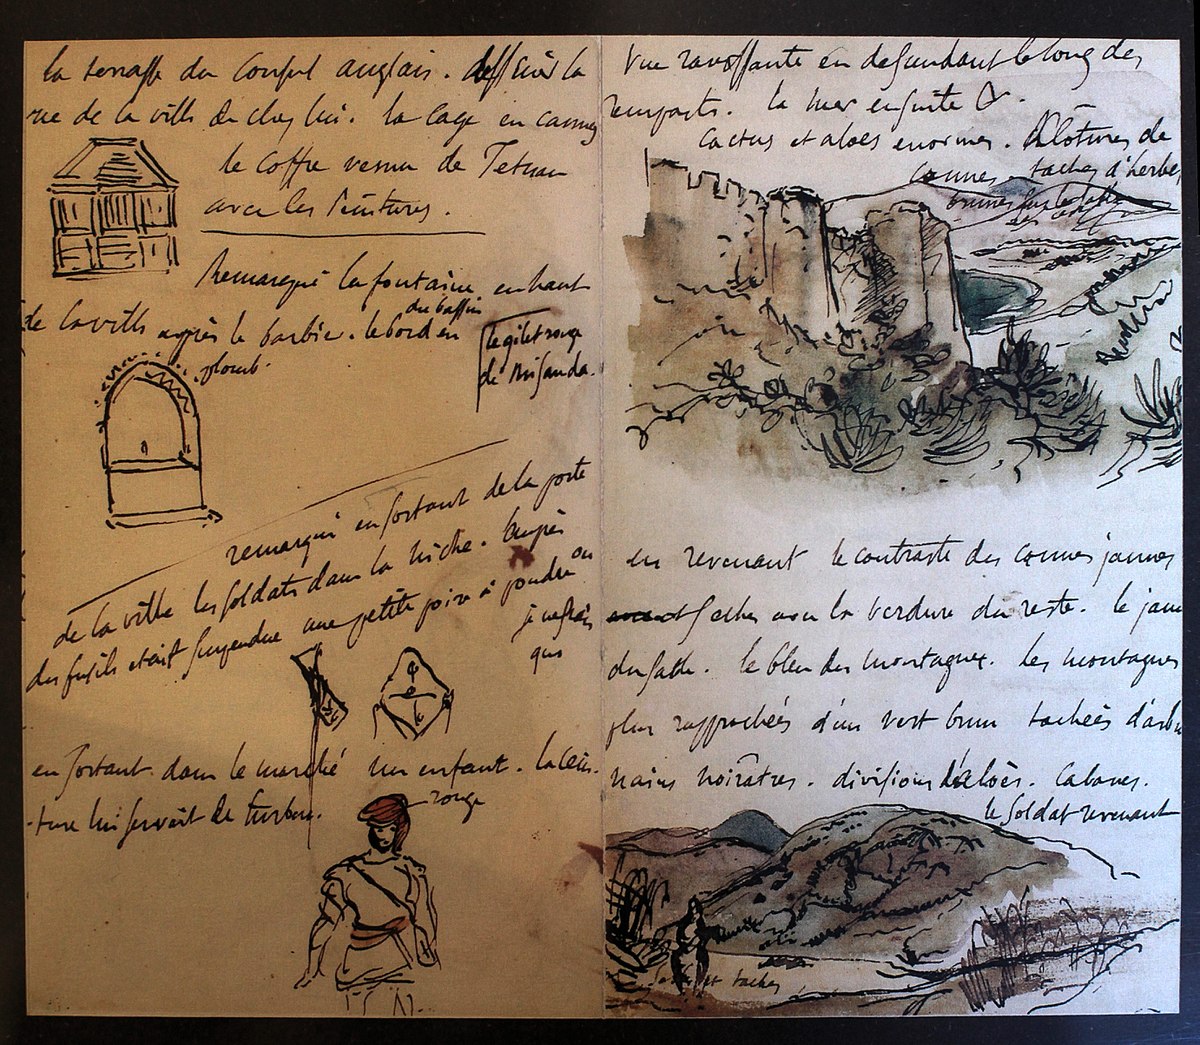 la terrasse du Consul anglais. dessiné la
vue de la ville de chez lui. la cage en cannes
le coffre venu de Tetuan
avec les peintures.
Remarqué la fontaine en haut
de la ville après le barbier. le bord
du bassin
en
plomb.
le gilet rouge
de
remarqué en sortant de la porte
de la ville les soldats dans la niche. auprès
des fusils etait suspendue une petite poire à poudre ou
je ne sais
quoi
en sortant dans le marché un enfant. la cein-
-ture lui servait de turban.
rouge
Vue ravissante en descendant le long des
remparts. la mer ensuite &.
Cactus et aloes enormes. Clôtures de
cannes. taches d'herbes
brunes sur le sable
en revenant le contraste des cannes jaunes
seches avec la verdure du reste. le jaune
du sable. le bleu des montagnes. les montagnes
plus rapprochées d'un vert brun tachées d'arbres
nains noirâtres. divisions d'aloès. Cabanes.
le soldat revenant
et taches